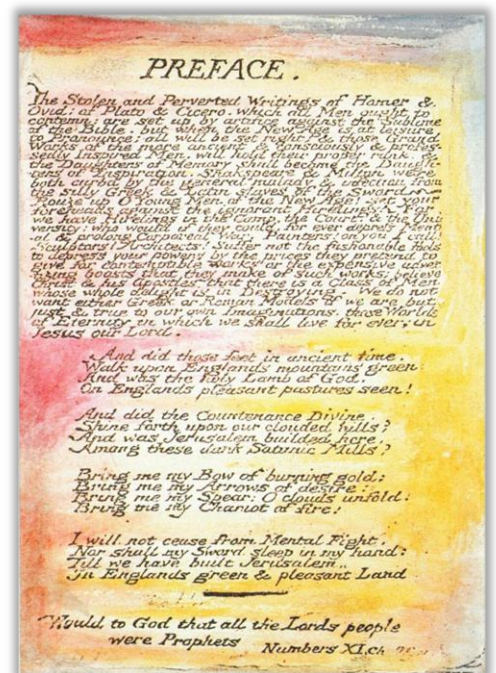 PREFACE.
The Stolen and Perverted Writings of Homer &
Ovid: of Plato & Cicero. which all Men ought to
contemn: are set up by artifice against the Sublime
of the Bible. but when the New Age is at leisure
to Pronounce; all will be set right: & those Grand
Works of the more ancient & consciously & profes-
sedly Inspired Men, will hold their proper rank, &
the Daughters of Memory shall become the Daugh-
ters of Inspiration. Shakspeare & Milton were
both curbd by the general malady & infection from
the silly Greek & Latin slaves of the Sword.
Rouze up O Young Men of the New Age! set your
foreheads against the ignorant Hirelings! For
we have Hirelings in the Camp, the Court, & the Uni-
versity: who would if they could, for ever depress Ment-
al & prolong Corporeal War. Painters! on you I call!
Sculptors! Architects! Suffer not the fashonable Fools
to depress your powers by the prices they pretend to
give for contemptible works or the expensive adver-
tizing boasts that they make of such works; believe
Christ & his Apostles that there is a Class of Men
whose whole delight is in Destroying. We do not
want either Greek or Roman Models if we are but
just & true to our own Imaginations, those Worlds
of Eternity in which we shall live for ever; in
Jesus our Lord.
And did those feet in ancient time,
Walk upon Englands mountains green:
And was the holy Lamb of God,
On Englands pleasant pastures seen!
And did the Countenance Divine,
Shine forth upon our clouded hills?
And was Jerusalem builded here,
Among these dark Satanic Mills?
Bring me my Bow of burning gold:
Bring me my Arrows of desire:
Bring me my Spear: O clouds unfold:
Bring me my Chariot of fire!
I will not cease from Mental Fight,
Nor shall my Sword sleep in my hand:
Till we have built Jerusalem,
In Englands green & pleasant Land
Would to God that all the Lords people
were Prophets Numbers XI.ch